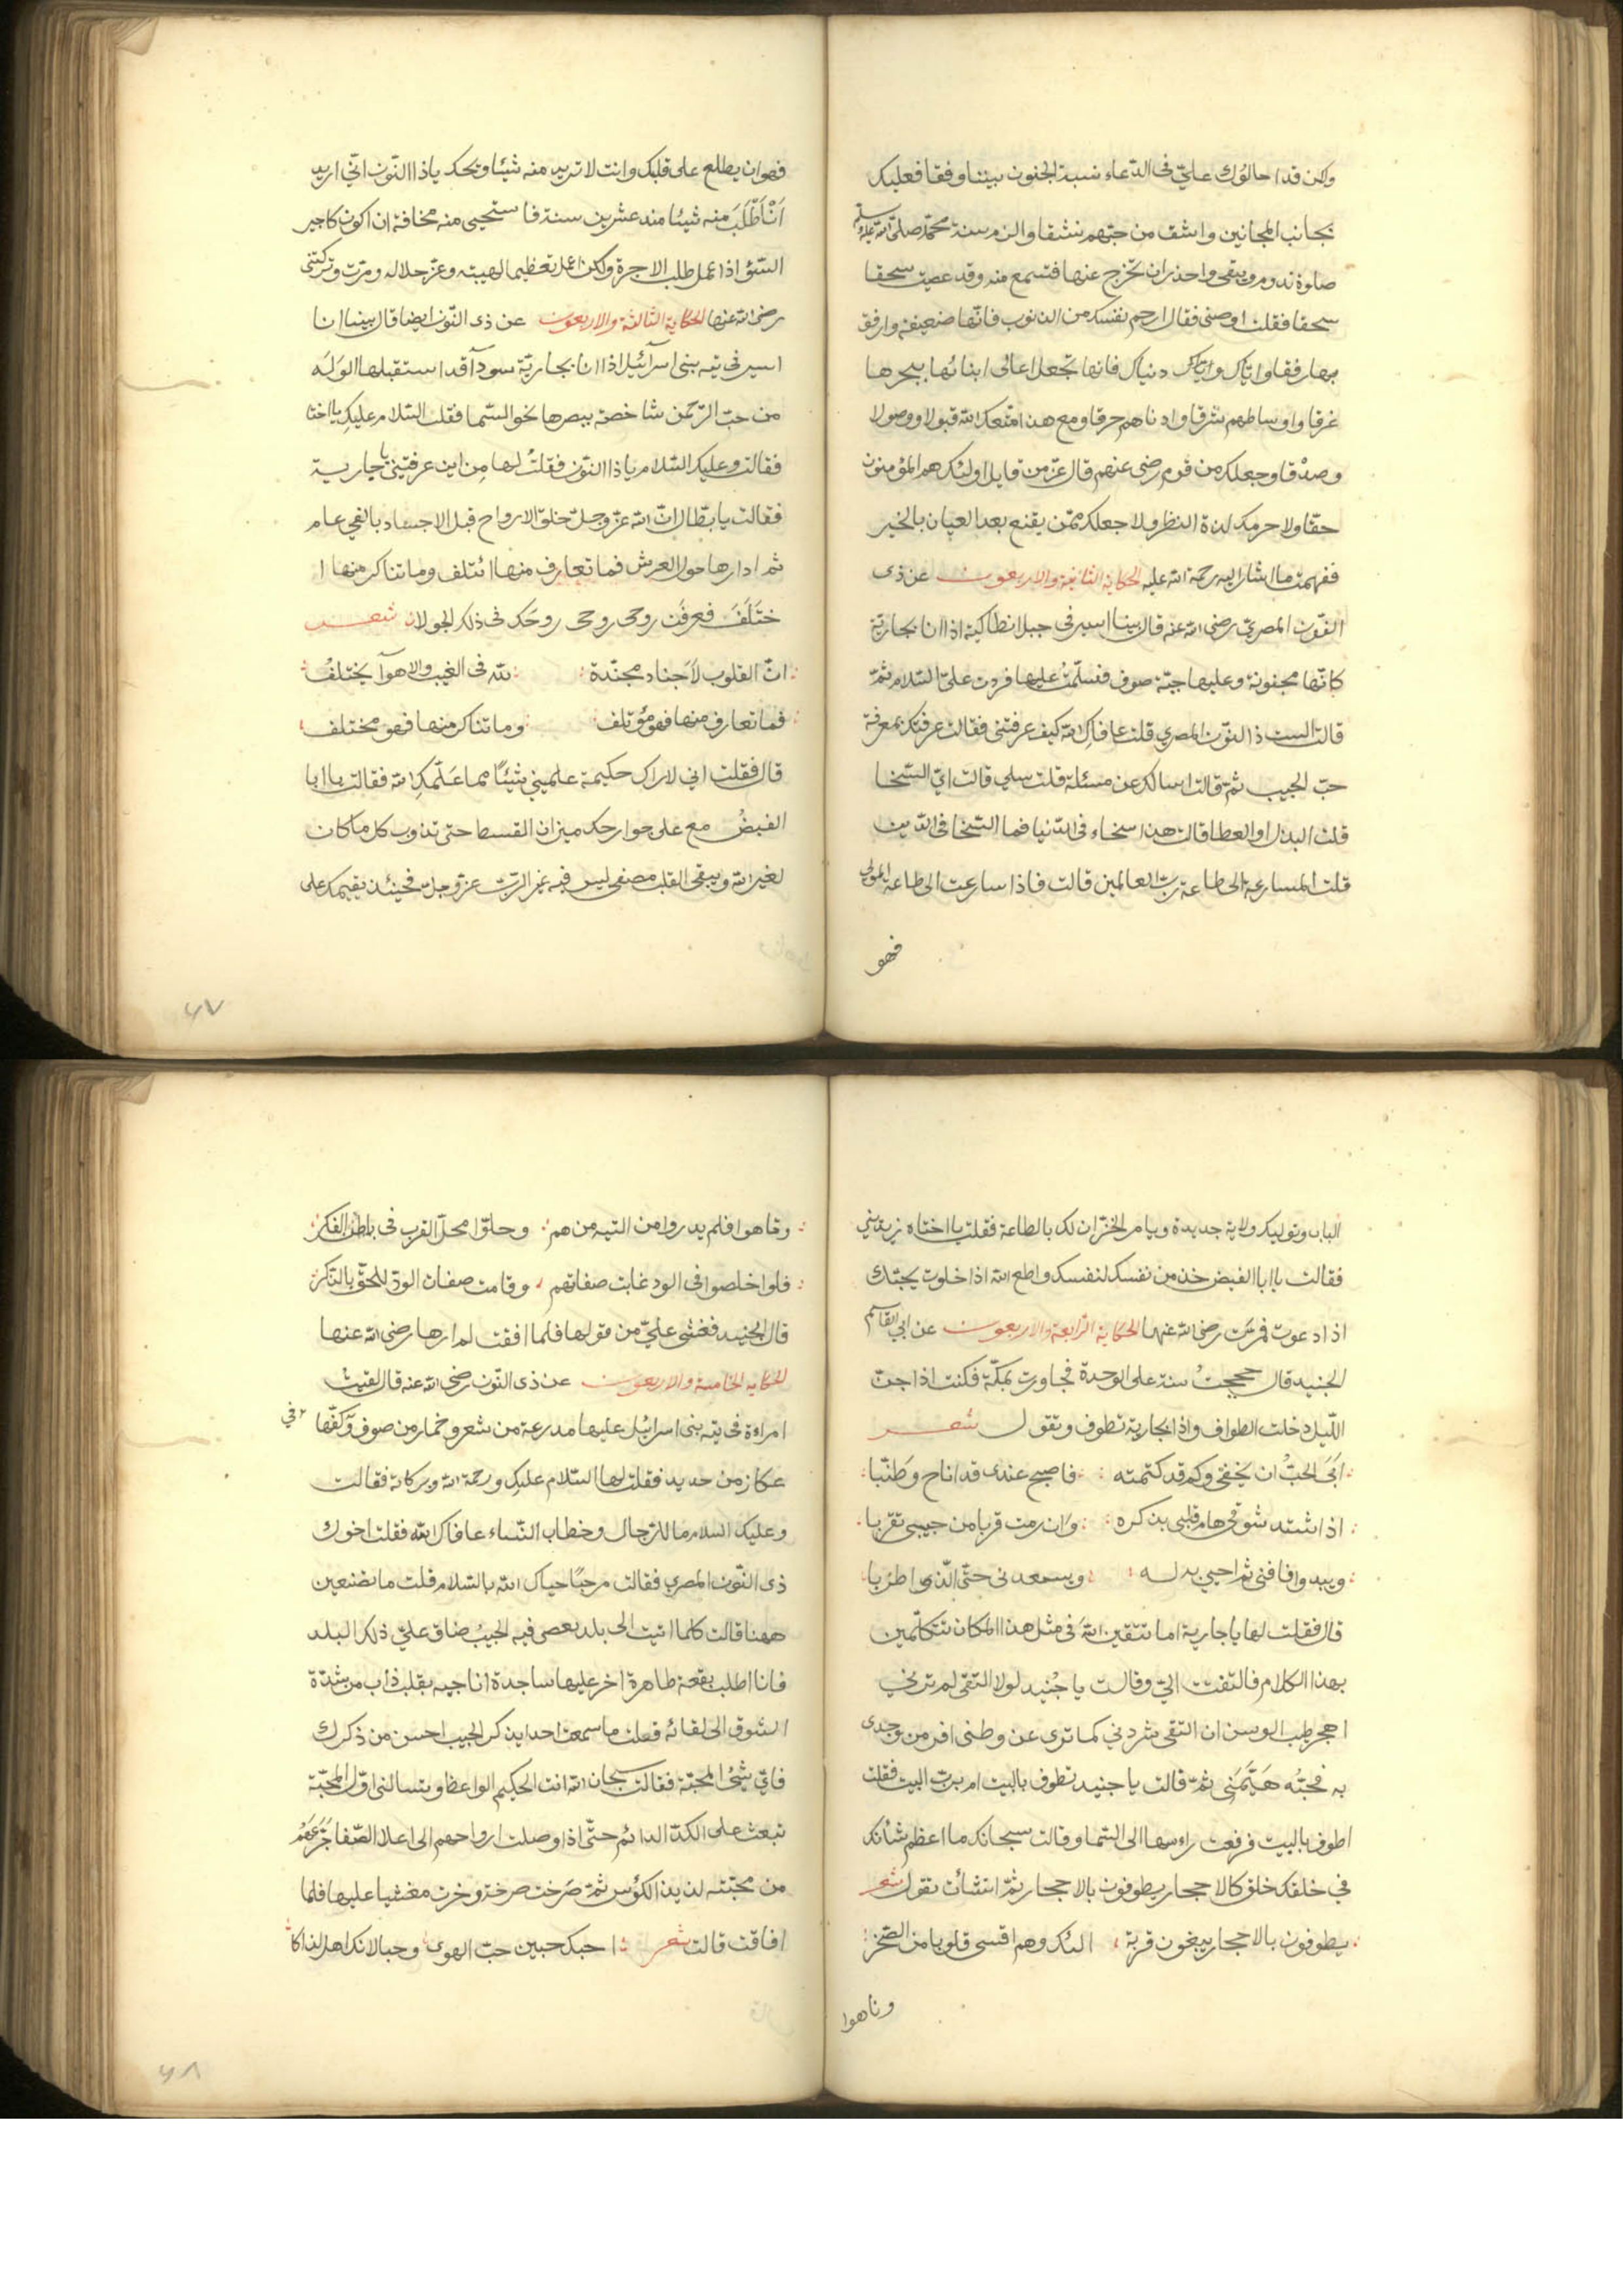 ولكن قد احالوك علي في الدعاء نسبة الجنون بيننا وفقا فعليك
بجانب المجانين وانشق من حبهم نشقا والزم سنة محمد صلى الله عليه وسلم
صلوة تدوم وتبقى واحذر ان تخرج عنها فتسمع منه وقد عصيت سحقا
سحقا فقلت اوصني فقال ارحم نفسك من الذنوب فانها ضعيفة وارفق
بها رفقا واياك واياك دنياك فانها تجعل اعالى ابنائها ببحرها
غرقا واوساطهم شرقا وادناهم حرقا ومع هذا متعك الله قبولا ووصولا
وصدقا وجعلك من قوم رضى عنهم قال عز من قايل اولئك هم المؤمنون
حقا ولا حرمك لذة النظر ولا جعلك ممن يقنع بعد العيان بالخبر
ففهمت ما اشار اليه رحمة الله عليه الحكاية الثانية والاربعون عن ذى
النون المصري رضى الله عنه قال بينا اسير فى جبل انطاكية اذا انا بجارية
كانها مجنونة وعليها جبة صوف فسلمت عليها فردت على السلام ثم
قالت الست ذا النون المصري قلت عافاك الله كيف عرفتنى فقالت عرفتك بمعرفة
حب الحبيب ثم قالت اسالك عن مسئلة قلت سلي قالت اي السخا
قلت البذل والعطا قالت هذا سخاء فى الدنيا فما السخا فى الدين
قلت المسارعة الى طاعة رب العالمين قالت فاذا سارعت الى طاعة المولى
فهو
فهو ان يطلع على قلبك وانت لا تريد منه شيئا ويحك ياذا النون انى اريد
ان اطلب منه شيئا منذ عشرين سنة فاستحيى منه مخافة ان اكون كاجير
السؤ اذا عمل طلب الاجرة ولكن اعمل تعظيما لهيبته وعز جلاله ومرت وتركتنى
رضى الله عنها الحكاية الثالثة والاربعون عن ذى النون ايضا قال بينا انا
اسير في تيه بنى اسرائيل اذا انا بجارية سودآ قد استقبلها الوله
من حب الرحمن شاخصة ببصرها نحو السما فقلت السلام عليك يا اختا
فقالت وعليك السلام ياذا النون فقلت لها من اين عرفتينى يا جارية
فقالت يا بطال ان الله عز وجل خلق الارواح قبل الاجساد بالفي عام
ثم ادارها حول العرش فما تعارف منها ائتلف وما تناكر منها ا
ختلف فعرفت روحى روحك فى ذلك الجولان شعر
ان القلوب لاجناد مجندة لله فى الغيب والاهوآ يختلف
فما تعارف منها فهو مؤتلف وما تناكر منها فهو مختلف
قال فقلت اني لاراك حكيمة علميني شيئا مما علمك الله فقالت يا ابا
الفيض ضع على جوارحك ميزان القسط حتى تذوب كل ما كان
لغير الله ويبقى القلب مصفى ليس فيه غير الرب عز وجل فحينئذ يقيمك على
٤٧
الباب ونوليك ولاية جديدة ويامر الخزان لك بالطاعة فقلت يا اختاه زيديني
فقالت يا ابا الفيض خذ من نفسك لنفسك واطع الله اذا خلوت يجبك
اذا دعوت ثم مرت رضى الله عنها الحكاية الرابعة والاربعون عن ابي القاسم
الجنيد قال حججت سنة على الوحدة فجاورت بمكة فكنت اذا جن
الليل دخلت الطواف واذا بجارية تطوف وتقول شعر
ابى الحب ان يخفى وكم قد كتمته فاصبح عندى قد اناخ وطنبا
اذا اشتد شوقى هام قلبى بذكره وان رمت قربا من حبيبى تقربا
ويبدو فافنى ثم احيى به له ويسعدنى حتى الذ واطربا
قال فقلت لها يا جارية اما تتقين الله فى مثل هذا المكان تتكلمين
بهذا الكلام فالتفتت الي وقالت يا جنيد لولا التقى لم ترني
اهجر طيب الوسن ان التقى شردني كما ترى عن وطنى افر من وجدى
به فحبه هيمنى ثم قالت يا جنيد تطوف بالبيت ام برب البيت فقلت
اطوف بالبيت فرفعت راسها الى السما وقالت سبحانك ما اعظم شانك
في خلقك خلق كالاحجار يطوفون بالاحجار ثم انشأت تقول شعر
يطوفون بالاحجار يبغون قربة اليك وهم اقسى قلوبا من الصخر
وتاهوا
وتاهوا فلم يدروا من التيه من هم وحلوا محل القرب فى باطن الفكر
فلو اخلصوا فى الود غابت صفاتهم وقامت صفات الود للحق بالذكر
قال الجنيد فغشى علي من قولها فلما افقت لم ارها رضى الله عنها
الحكاية الخامسة والاربعون عن ذى النون رضى الله عنه قال لقيت
امراة فى تيه بنى اسرائيل عليها مدرعة من شعر وخمار من صوف وفي كفها
عكاز من حديد فقلت لها السلام عليك ورحمة الله وبركاته فقالت
وعليك السلام ما للرجال وخطاب النساء عافاك الله فقلت اخوك
ذى النون المصري فقالت مرحبا حياك الله بالسلام قلت ما تصنعين
ههنا قالت كلما اتيت الى بلد يعصى فيه الحبيب ضاق علي ذلك البلد
فانا اطلب بقعة طاهرة اخر عليها ساجدة اناجيه بقلب ذاب من شدة
الشوق الى لقائه فقلت ما سمعت احدا يذكر الحبيب احسن من ذكرك
فاي شئ المحبة فقالت سبحان الله انت الحكيم الواعظ وتسالنى اول المحبة
تبعث على الكد الدائم حتى اذا وصلت ارواحهم الى اعلا الصفا جرعهم
من محبته لذيذ الكؤس ثم صرخت صرخة وخرت مغشيا عليها فلما
افاقت قالت شعر احبك حبين حب الهوى وحبا لانك اهل لذاكا
٤٨